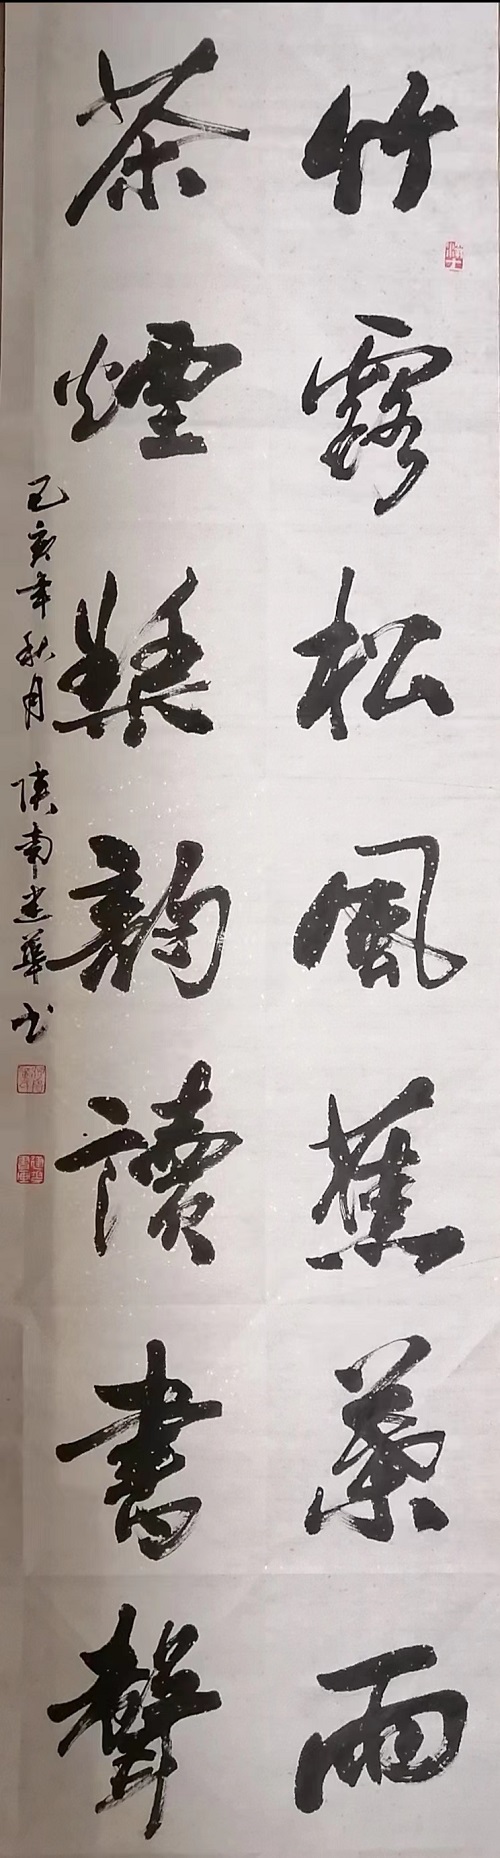 竹露松風蕉葉雨
茶煙琴韻讀書聲
己亥年秋月 陕南建華书